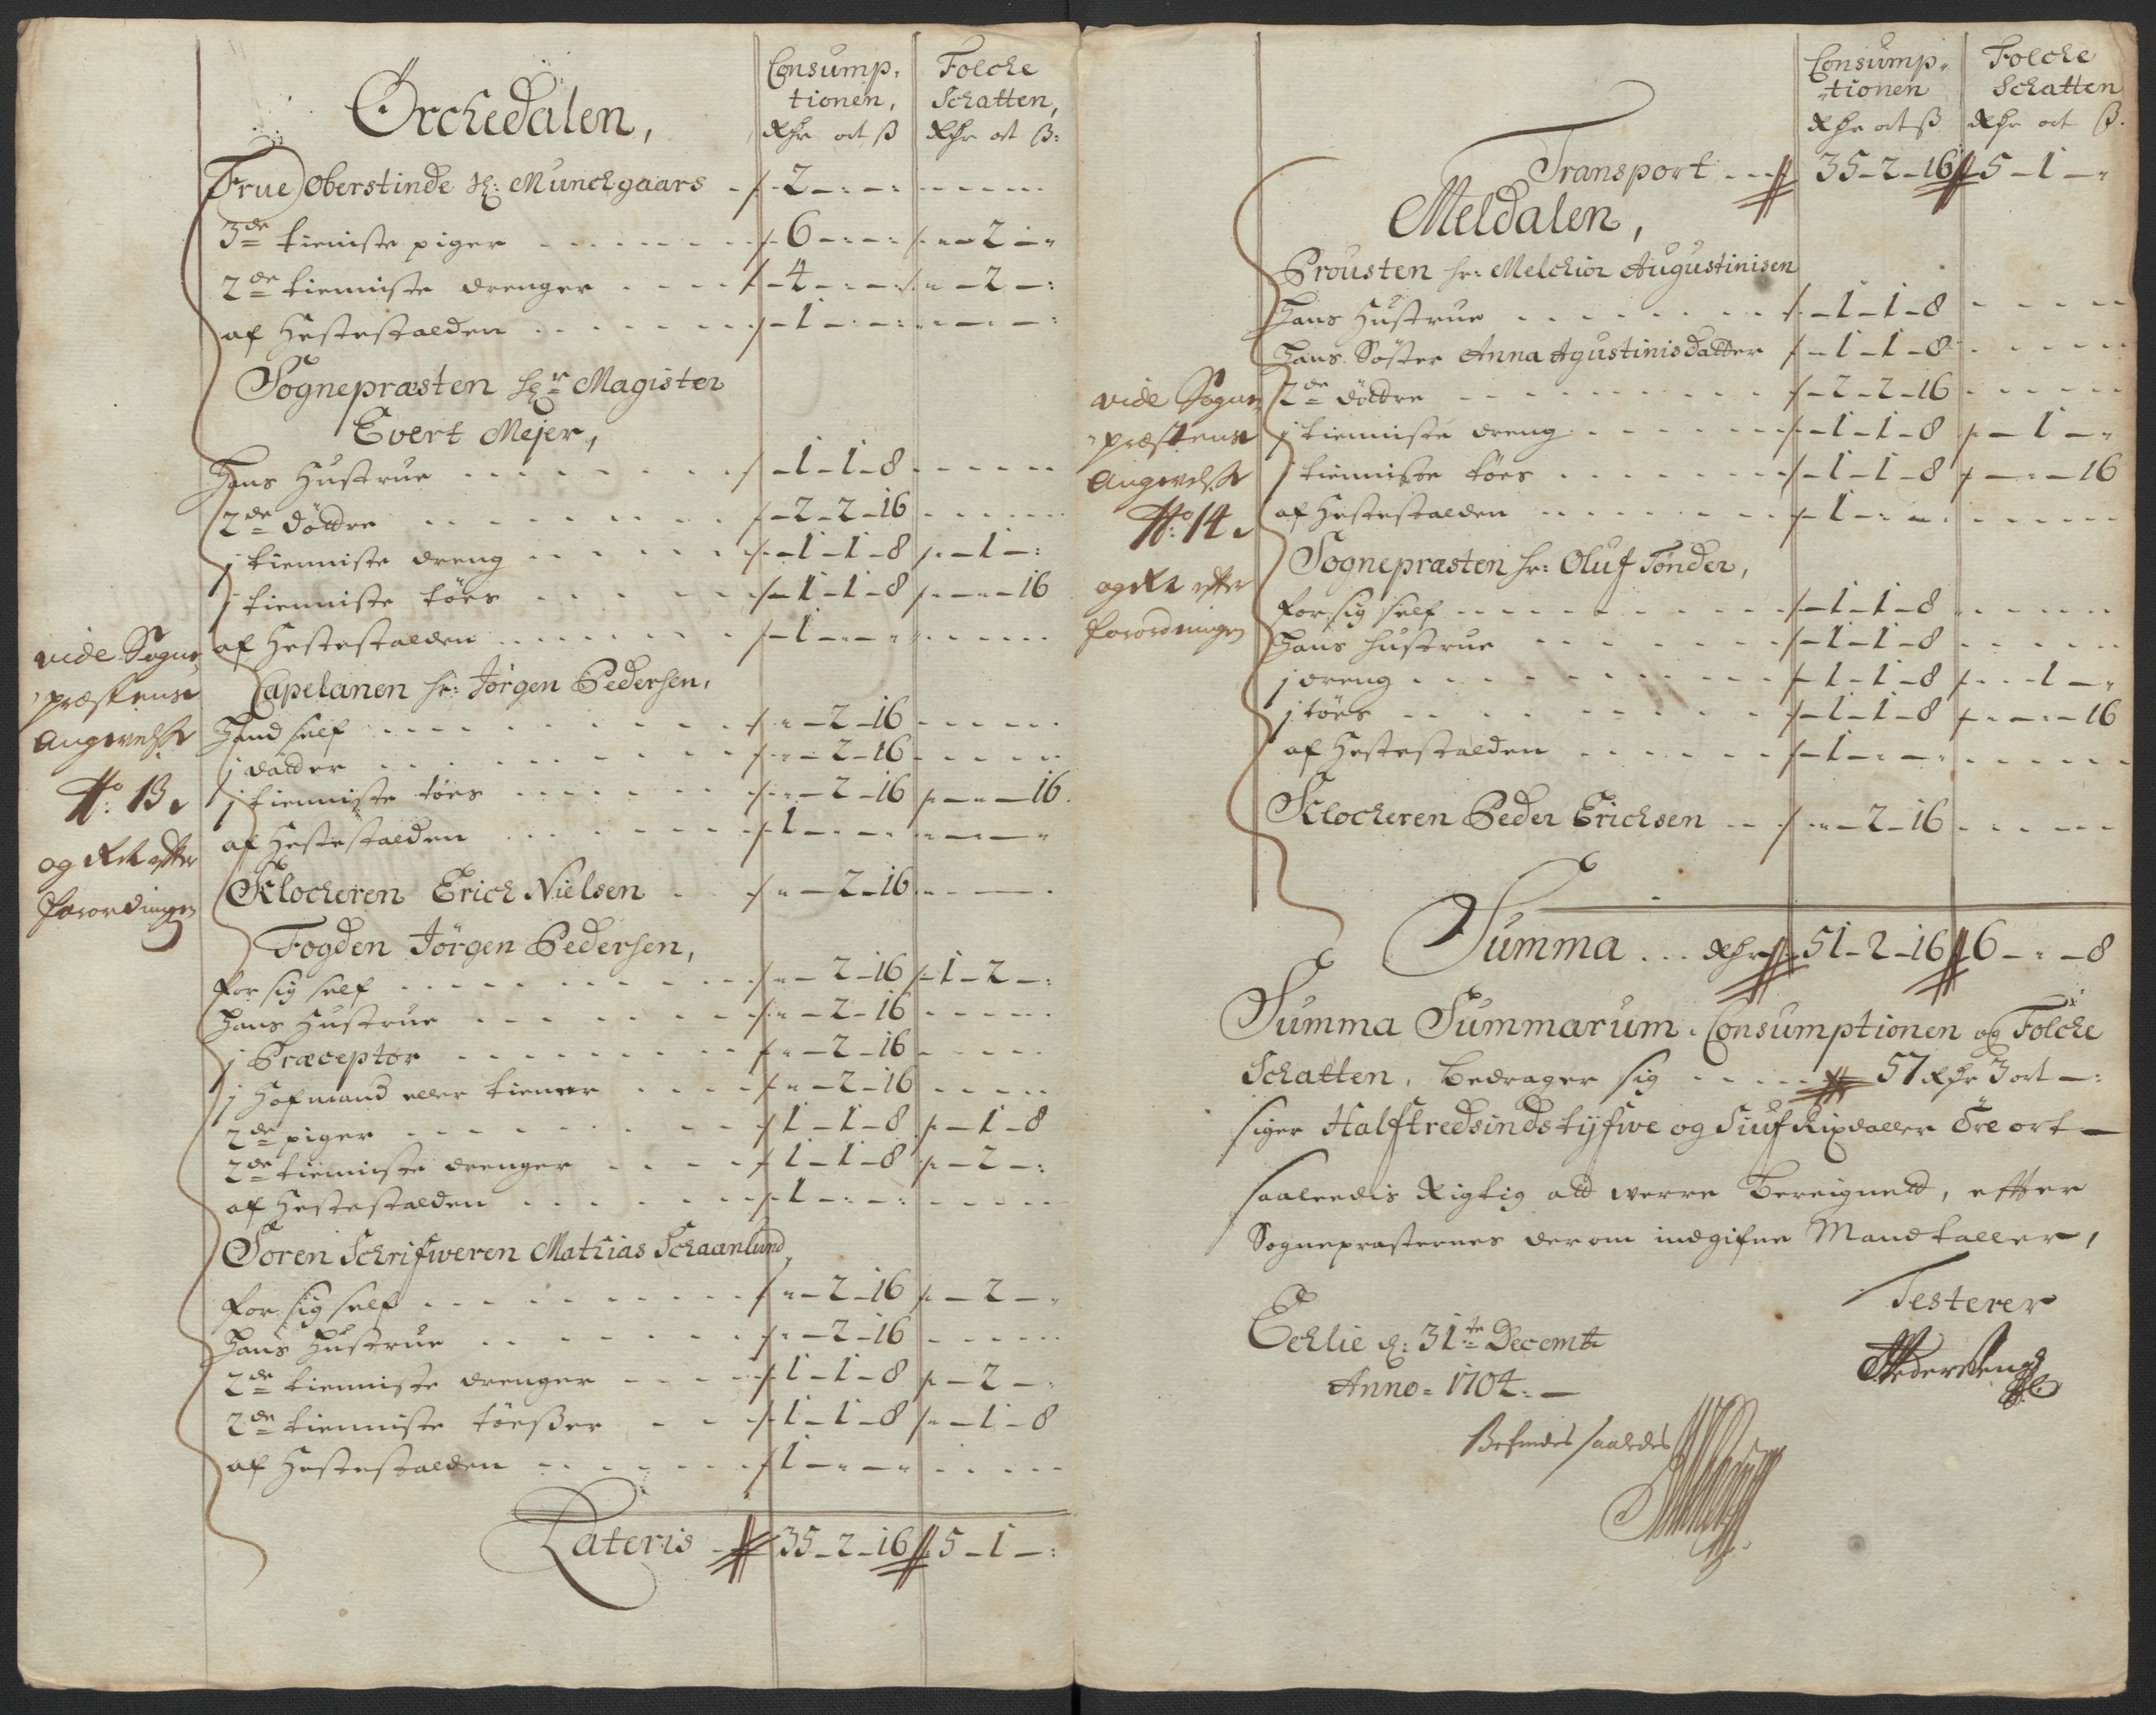 Orchedalen,
Consump-
tionen,
Rdr ort ß
Folche
Schatten,
Rdr ort ß:
Frue Oberstinde Sl: Munchgaars - 2 - : - :
3de tieniste piger - 6 - : - : - 2 -
2de tienniste drenger - 4 - : - : - 2 - :
af Hestestalden - 1 - : - :
Sognepræsten Hr Magister
Evert Mejer,
Hans Hustrue - 1 - 1 - 8
2de döttre - 2 - 2 - 16
j tienniste dreng - 1 - 1 - 8 - 1 - :
j tienniste töes - 1 - 1 - 8 - - 16
af Hestestalden - 1 - - -
Capelanen hr: Jörgen Pedersen,
Hand self - 2 - 16
j datter - 2 - 16
j tienniste töes - 2 - 16 - - 16
af Hestestalden - 1 - - -
Klocheren Erich Nielsen - 2 - 16
vide Sogne
præstens
Angivelse
No: 13
og Ret efter
forordingen
Fogden Jörgen Pedersen,
for sig self - 2 - 16 - 1 - 2 - :
Hans Hustrue - 2 - 16
j Præceptor - 2 - 16
j Hofmand eller tiener - 2 - 16
2de piger 1 - 1 - 8 - 1 - 8
2de tienniste drenger 1 - 1 - 8 - 2 - :
af Hestestalden - 1 - : - :
Soren Schrifweren Mathias Schaanlund
for sig self - 2 - 16 - 2 -
Hans Hustrue - 2 - 16
2de tienniste drenger 1 - 1 - 8 - 2 -
2de tienniste töeßer 1 - 1 - 8 - 1 - 8
af Hestestalden 1 - - -
Lateris 35 - 2 - 16 5 - 1 - :
Consump-
-tionen
Rdr ort ß
Folche
Schatten
Rdr ort ß.
Transport 35 - 2 - 16 5 - 1 -
Meldalen,
Prousten hr: Melchior Augustinisen
Hans Hustrue - 1 - 1 - 8
Hans Söster Anna Agustinisdatter - 1 - 1 - 8
2de döttre - 2 - 2 - 16
j tienniste dreng - 1 - 1 - 8 - 1 -
j tienniste töes - 1 - 1 - 8 - - 16
af Hestestalden - 1 - : -
vide Sogne
præstens
Angivelse
No: 14
og Ret efter
forordningen
Sognepræsten hr: Oluf Tønder,
for sig self - 1 - 1 - 8
Hans hustrue - 1 - 1 - 8
j dreng - 1 - 1 - 8 - 1 -
j töes - 1 - 1 - 8 - - 16
af Hestestalden - 1 - - -
Klocheren Peder Erichsen - 2 - 16
Summa ... Rdr 51 - 2 - 16 6 - - 8
Summa Summarum. Consumptionen og Folche
Schatten, bedrager sig 57 Rdr 3 ort - :
siger Halftredsindstyfwe og Siuf Rixdaller Tre ort -
saaleedis Rigtig att werre bereignett, efter
Sognepræsternes derom indgifne Mandtaller,
Testerer
Echlie d: 31te Decemb
Anno = 1704: -
JPedersen
Befindes saaledes